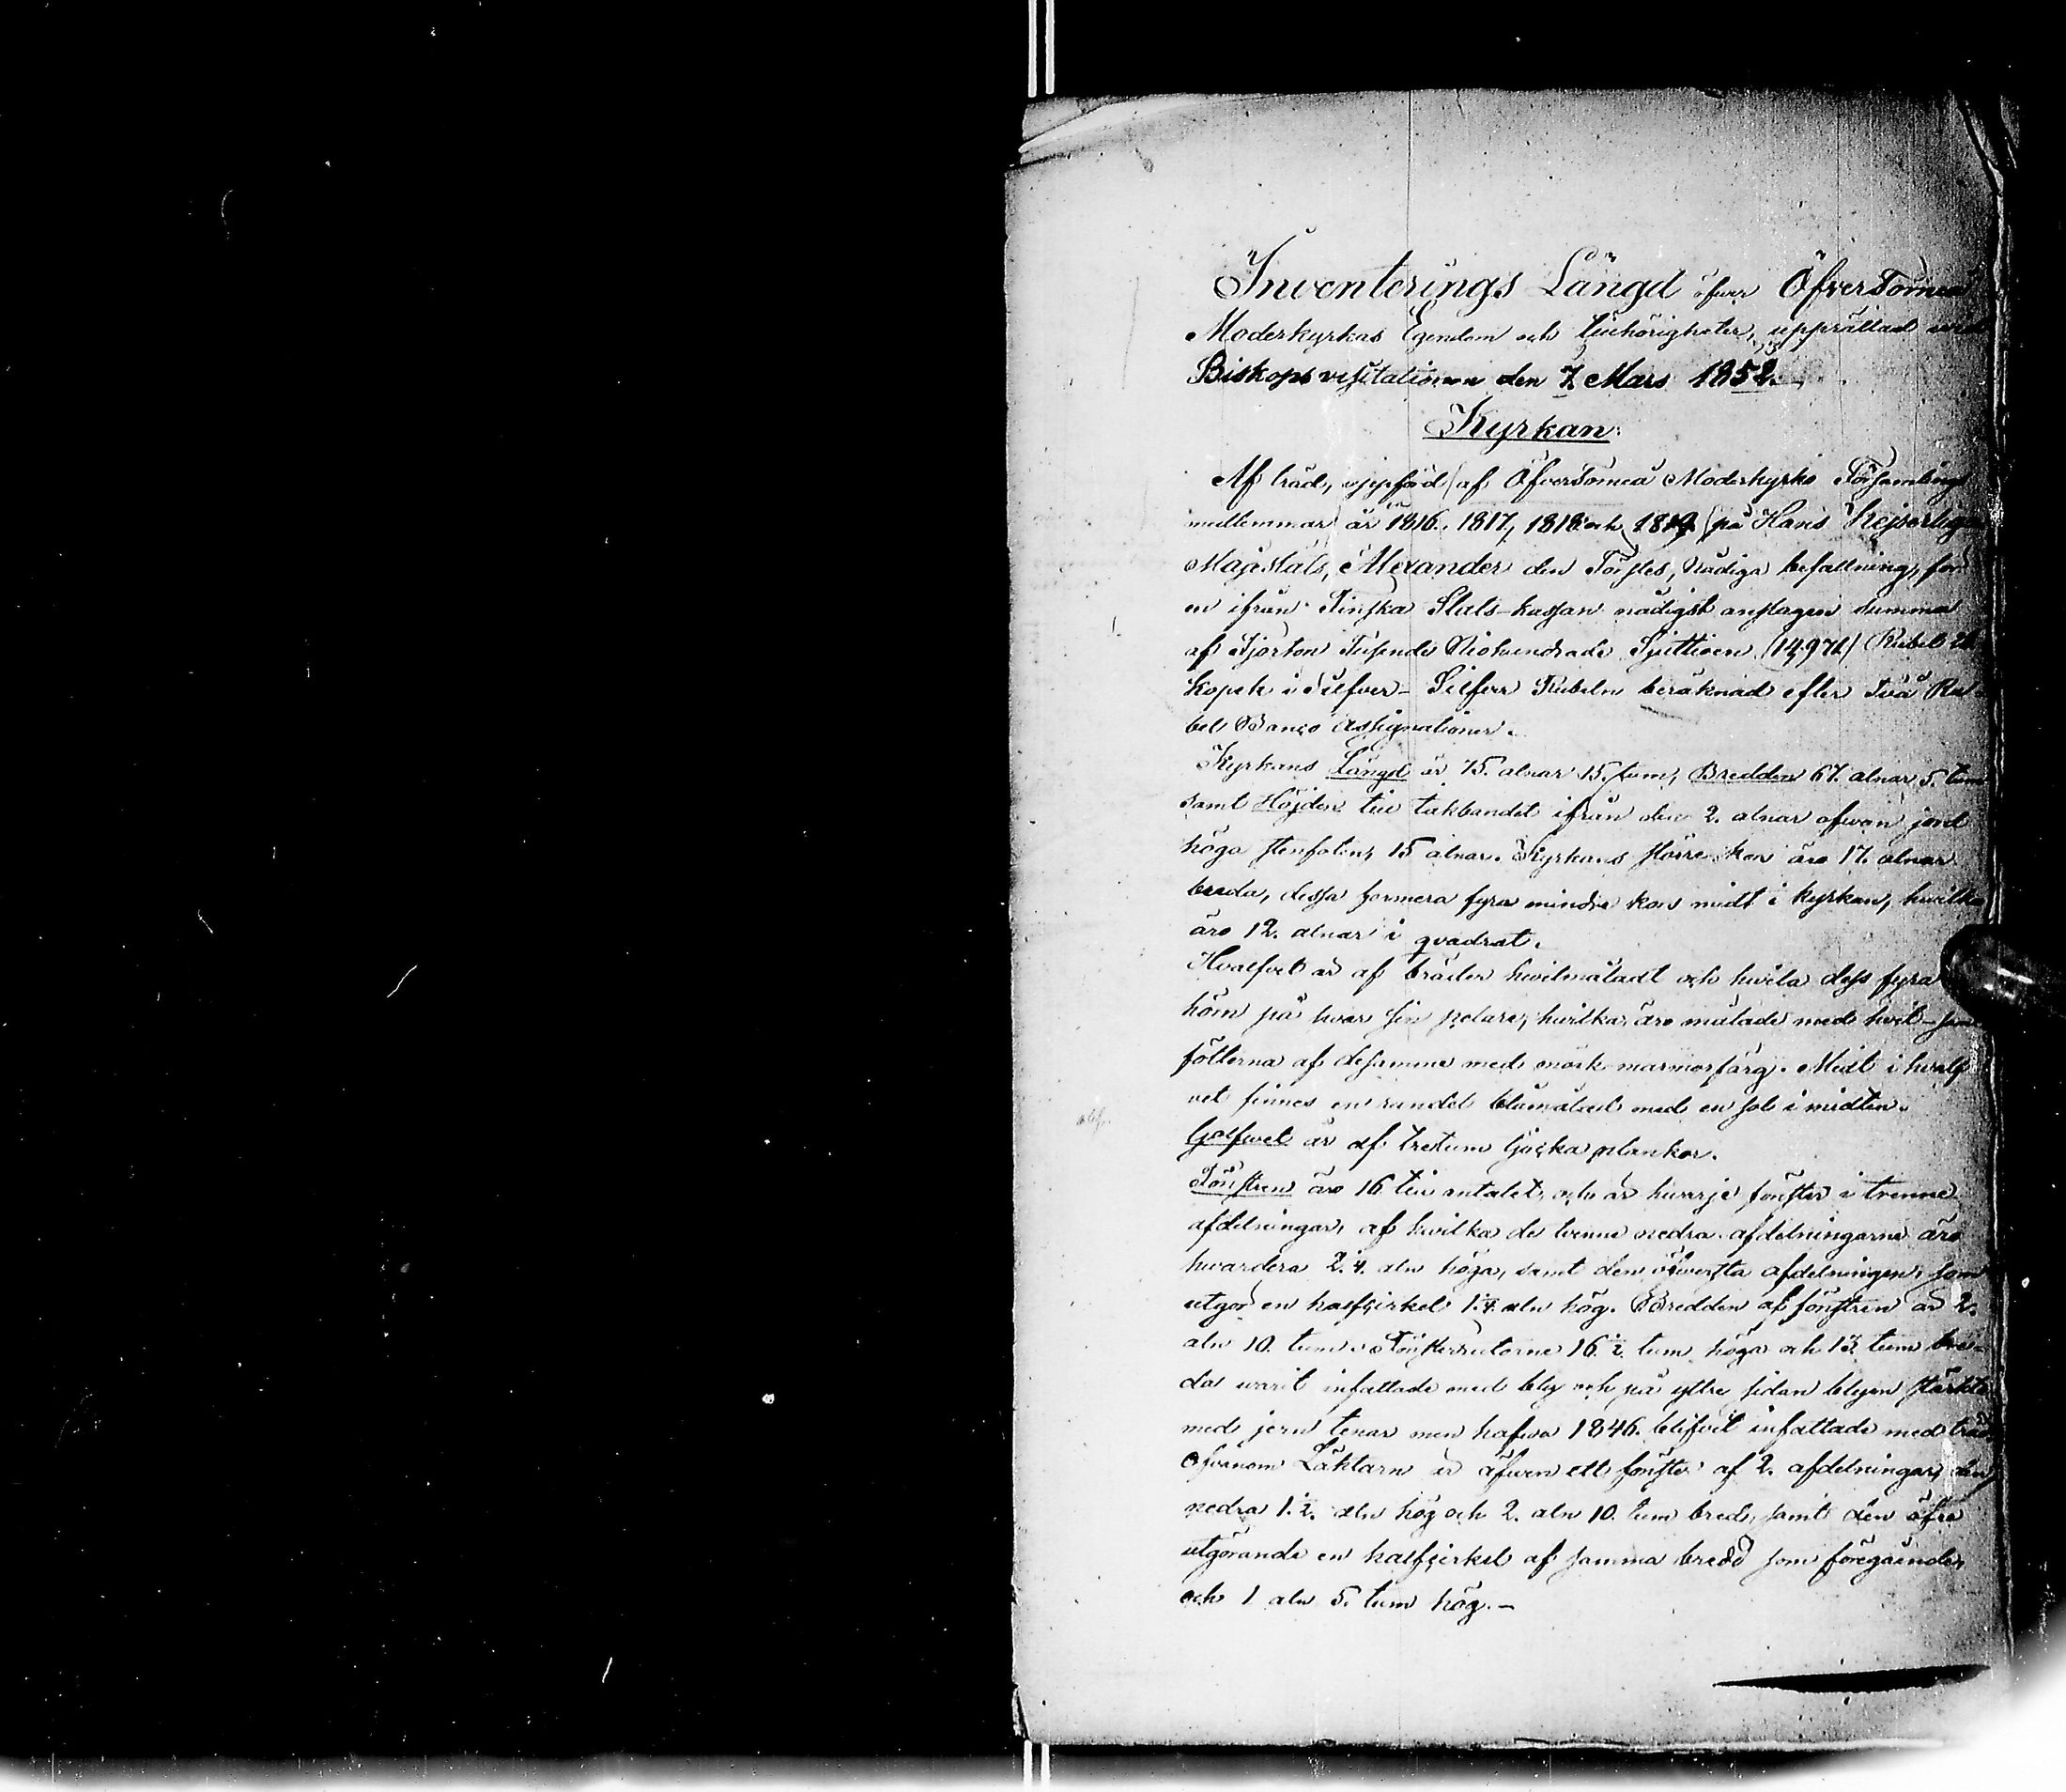 Inventerings Längd öfwer ÖfverTorneå
Moderkyrkas Egendom och tillhörigheter, upprättad wid
Biskops visitationen den 7 Mars 1852.
Kyrkan:
Af träd, uppförd af ÖfverTorneå Moderkyrko Församlings
medlemmar år 1816. 1817, 1818 och 1819 på Hans Kejserliga
Majestäts, Alexander den Förstes, Nådiga befallning, för
en ifrån Finska Stats-kassan nådigst anslagen summa
af Fjorton Tusende Niohundrade Sjuttioen (14,971) Rubel
Kopek i Silfver- Silfver Rubeln beräknad efter Två Ru-
bel Banco Assignationer.
Kyrkans Längd är 75. alnar 15. tum, Bredden 67. alnar 5. tum
samt Höjden till takbandet ifrån den 2. alnar ofwan jord
höga stenfoten, 15 alnar. Kyrkans större kors äro 17. alnar
breda, dessa formera fyra mindre kors midt i kyrkan, hwilka
äro 12. alnar i qvadrat.
Hvalfvet är af bräder hwitmåladt och hwila dess fyra
hörn på hvar sin pelare, hwilka äro målade med hvit-
fötterna af desamme med mörk marmorfärg. Midt i hvalf
vet finnes en rundel blåmålad med en sol i midten.
Golfwet är af tretum tjocka plankor.
Fönstren äro 16 till antalet, och är hwarje fönster i trenne
afdelningar, af hwilka de tvenne nedra afdelningarne äro
hwardera 2.4. aln höga, samt den öfwersta afdelningen, som
utgör en halfcirkel 1.4. aln hög. Bredden af fönstren är 2.
aln 10. tum. Fönsterrutorne 16. 2. tum höga och 13. tum bre-
da warit infattade med bly och på yttre sidan blyen stärkta
med jern tenar men hafwa 1846. blifvit infattade med träd.
Ofvanom Läktarn är äfwen ett fönster af 2. afdelningar, den
nedra 1. 2. aln hög och 2. aln 10. tum bred, samt den öfre
utgörande en halfcirkel af samma bredd som föregående,
och 1 aln 5. tum hög.-